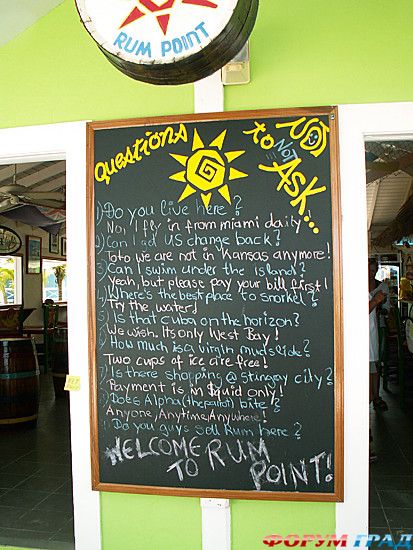 RUM POINT
Questions
to NOT
NOT
ASK...
1) Do you live here?
No, I fly in from miami daily
2) Can I get US change back?
Toto we are not in Kansas anymore!
3) Can I swim under the island?
Yeah, but please pay your bill first!
4) Where's the best place to snorkel?
Try the water!
5) Is that Cuba on the horizon?
We wish. Its only West Bay!
6) How much is a virgin mudslide?
Two cups of ice are free!
7) Is there shopping @ stingray city?
Payment is in $quid only!
8) Does Alpha (the parrot) bite?
Anyone, Anytime, Anywhere!
9) Do you guys sell Rum here?
WELCOME
TO RUM
POINT!
ФОРУМ ГРАД